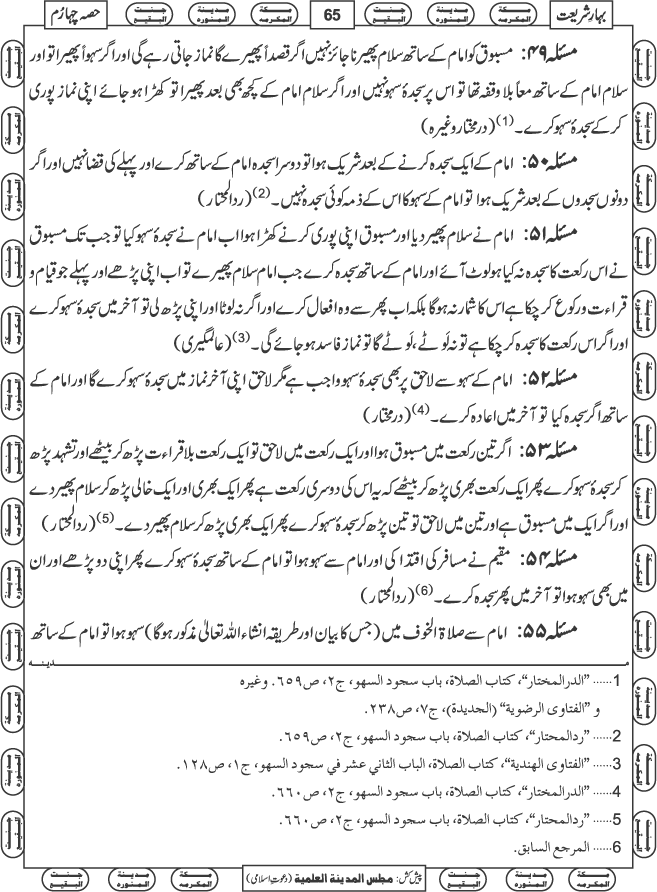 بہارِ شریعت
جنت البقیع
مدینۃ المنورہ
مکۃ المکرمہ
65
مکۃ المکرمہ
مدینۃ المنورہ
جنت البقیع
حصہ چہارم
مسئلہ ۴۹: مسبوق کو امام کے ساتھ سلام پھیرنا جائز نہیں اگر قصداً پھیرے گا نماز جاتی رہے گی اور اگر سہواً پھیرا تو اور
سلام امام کے ساتھ معاً بلا وقفہ تھا تو اس پر سجدۂ سہو نہیں اور اگر سلام امام کے کچھ بھی بعد پھیرا تو کھڑا ہو جائے اپنی نماز پوری
کر کے سجدۂ سہو کرے۔ (1) (درمختار وغیرہ)
مسئلہ ۵۰: امام کے ایک سجدہ کرنے کے بعد شریک ہوا تو دوسرا سجدہ امام کے ساتھ کرے اور پہلے کی قضا نہیں اور اگر
دونوں سجدوں کے بعد شریک ہوا تو امام کے سہو کا اس کے ذمہ کوئی سجدہ نہیں۔ (2) (ردالمحتار)
مسئلہ ۵۱: امام نے سلام پھیر دیا اور مسبوق اپنی پوری کرنے کھڑا ہوا اب امام نے سجدۂ سہو کیا تو جب تک مسبوق
نے اس رکعت کا سجدہ نہ کیا ہو لوٹ آئے اور امام کے ساتھ سجدہ کرے جب امام سلام پھیرے تو اب اپنی پڑھے اور پہلے جو قیام و
قراءت و رکوع کر چکا ہے اس کا شمار نہ ہوگا بلکہ اب پھر سے وہ افعال کرے اور اگر نہ لوٹا اور اپنی پڑھ لی تو آخر میں سجدۂ سہو کرے
اور اگر اس رکعت کا سجدہ کر چکا ہے تو نہ لَوٹے، لَوٹے گا تو نماز فاسد ہو جائے گی۔ (3) (عالمگیری)
مسئلہ ۵۲: امام کے سہو سے لاحق پر بھی سجدۂ سہو واجب ہے مگر لاحق اپنی آخر نماز میں سجدۂ سہو کرے گا اور امام کے
ساتھ اگر سجدہ کیا تو آخر میں اعادہ کرے۔ (4) (درمختار)
مسئلہ ۵۳: اگر تین رکعت میں مسبوق ہوا اور ایک رکعت میں لاحق تو ایک رکعت بلا قراءت پڑھ کر بیٹھے اور تشہد پڑھ
کر سجدۂ سہو کرے پھر ایک رکعت بھری پڑھ کر بیٹھے کہ یہ اس کی دوسری رکعت ہے پھر ایک بھری اور ایک خالی پڑھ کر سلام پھیر دے
اور اگر ایک میں مسبوق ہے اور تین میں لاحق تو تین پڑھ کر سجدۂ سہو کرے پھر ایک بھری پڑھ کر سلام پھیر دے۔ (5) (ردالمحتار)
مسئلہ ۵۴: مقیم نے مسافر کی اقتدا کی اور امام سے سہو ہوا تو امام کے ساتھ سجدۂ سہو کرے پھر اپنی دو پڑھے اور ان
میں بھی سہو ہوا تو آخر میں پھر سجدہ کرے۔ (6) (ردالمحتار)
مسئلہ ۵۵: امام سے صلاۃ الخوف میں (جس کا بیان اور طریقہ انشاء اللہ تعالیٰ مذکور ہوگا) سہو ہوا تو امام کے ساتھ
مدینہ
1...... ”الدرالمختار“، کتاب الصلاة، باب سجود السهو، ج۲، ص٦٥٩. وغیرہ
و ”الفتاوی الرضویة“ (الجدیدة)، ج۷، ص۲۳۸.
2...... ”ردالمحتار“، کتاب الصلاة، باب سجود السهو، ج۲، ص٦٥٩.
3...... ”الفتاوی الهندیة“، کتاب الصلاة، الباب الثاني عشر في سجود السهو، ج۱، ص۱۲۸.
4...... ”الدرالمختار“، کتاب الصلاة، باب سجود السهو، ج۲، ص٦٦۰.
5...... ”ردالمحتار“، کتاب الصلاة، باب سجود السهو، ج۲، ص٦٦۰.
6...... المرجع السابق.
جنت البقیع
مدینۃ المنورہ
مکۃ المکرمہ
پیش کش: مجلس المدینة العلمیة (دعوتِ اسلامی)
مکۃ المکرمہ
مدینۃ المنورہ
جنت البقیع